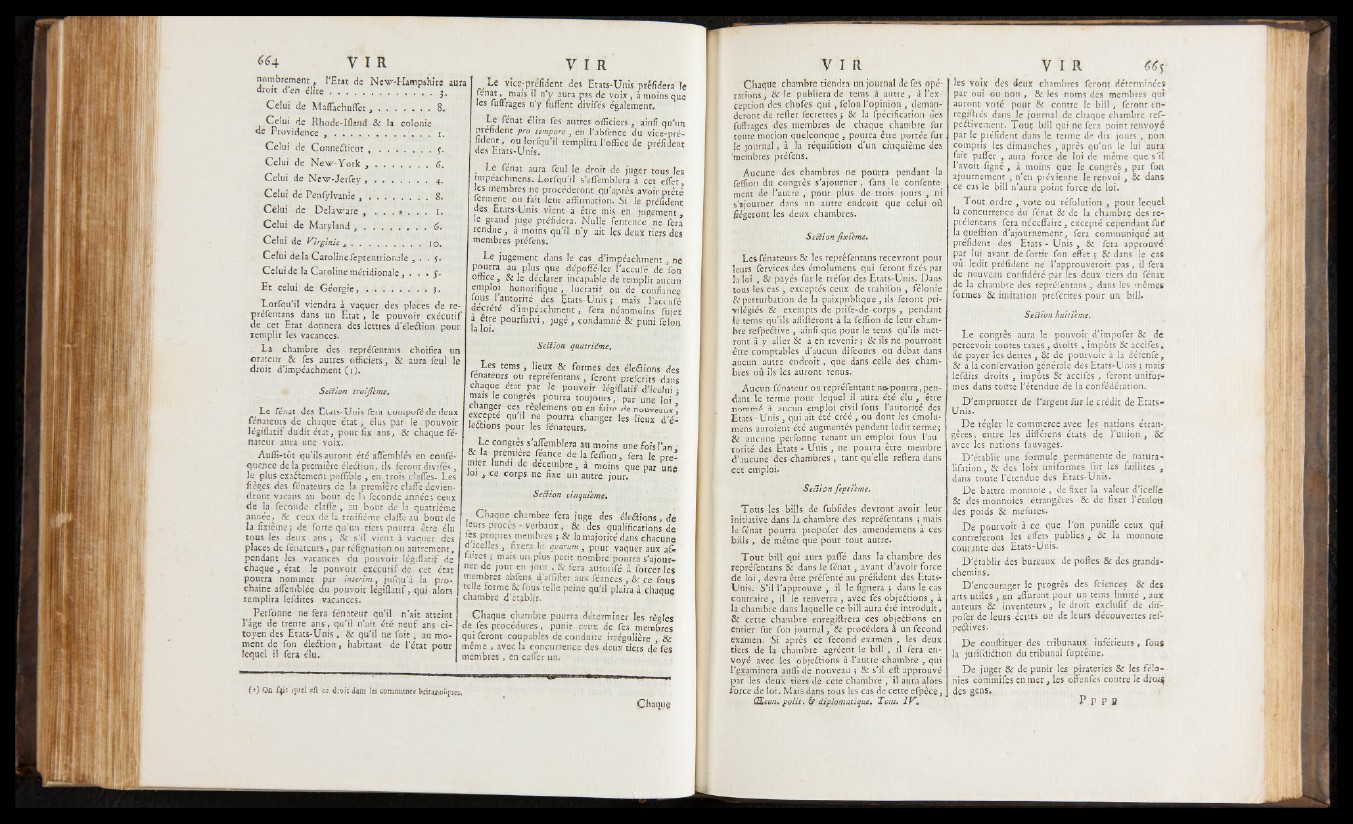 664 VIR
nombrement, l'Etat de New-Hampshire aura
droit d'en élire . . . . . . . . . . . . . 3.
Celui de Maſſachuſſet, . . . . . . . 8.
Celui de Rhode-Iſland & la colonie
de Providence , . . . . . . . . . . . . 1.
Celui de Connecticut , . . . . . . . 5.
Celui de New-York , . . . . . . . . 6.
Celui de New-Jerſey , . . . . . . . 4.
Celui de Penſylvanie , . . . . . . . . 8.
Celui de Delaware , . . . . . . 1.
Celui de Maryland , . . . . . . . . 6.
Celui de Virginie , . . . . . . . . . 10.
Celui de la Caroline ſeptentrionale , . . 5.
Celui de la Caroline méridionale, . . . 5.
Et celui de Géorgie, . . . . . . . . 3.
Lorſqu'il viendra à vaquer des places de re-
préſentans dans un Etat, le pouvoir exécutif
de cet Etat donnera des lettres d'élection pour
remplir les vacances.
La chambre des repréſentans choiſira un
orateur & ſes autres officiers, & aura ſeul le
droit d'impéachment (1).
Section troiſième.
Le ſénat des Etats-Unis ſera compoſé de deux
ſénateurs de chaque état, élus par le pouvoir
légiſlatif dudit état, pour ſix ans, & chaque ſé-
nateur aura une voix.
Auſſi-tôt qu'ils auront été aſſemblés en conſé-
quence de la première élection, ils ſeront diviſés,
le plus exactement poſſible , en trois claſſes. Les
ſièges des ſénateurs de la première claſſe devien-
dront vacans au bout de la ſeconde année ; ceux
de la ſeconde claſſe , au bout de la quatrième
année, & ceux de la troiſième claſſe au bout de
la ſixième ; de ſorte qu'un tiers pourra être élu
tous les deux ans ; & s'il vient à vaquer des
places de ſénateurs, par réſignation ou autrement,
pendant les vacances du pouvoir légiſlatif de
chaque, état le pouvoir exécutif de cet état
pourra nommer par interim, juſqu'à la pro-
chaine aſſemblée du pouvoir légiſlatif, qui alors
remplira leſdites vacances.
Perſonne ne ſera ſénateur qu'il n'ait atteint
l'âge de trente ans, qu'il n'ait été neuf ans ci-
toyen des Etats-Unis, & qu'il ne ſoit, au mo-
ment de ſon élection, habitant de l'état pour
lequel il ſera élu.
(1) On ſait quel eſt ce droit dans les communes britanniques.
VIR
Le vice-préſident des Etats-Unis préſidera le
ſénat, mais il n'y aura pas de voix, à moins que
les ſuffrages n'y fuſſent diviſés également.
Le ſénat élira ſes autres officiers, ainſi qu'un
préſident pro tempore, en l'abſence du vice-pré-
ſident, ou lorſqu'il remplira l'office de préſident
des Etats-Unis.
Le ſénat aura ſeul le droit de juger tous les
impéachmens. Lorſqu'il s'aſſemblera à cet effet,
les membres ne procéderont qu'après avoir prêté
ſerment ou fait leur affirmation. Si le préſident
des Etats-Unis vient à être mis en jugement,
le grand juge préſidera. Nulle ſentence ne ſera
rendue, à moins qu'il n'y ait les deux tiers des
membres préſens.
Le jugement dans le cas d'impéachment, ne
pourra au plus que dépoſſéder l'accuſé de ſon
office, & le déclarer incapable de remplir aucun
emploi honorifique, lucratif ou de confiance
ſous l'autorité des Etats-Unis ; mais l'accuſé
décrété d'impéachment, ſera néanmoins ſujet
à être pourſuivi, jugé, condamné & puni ſelon
la loi.
Section quatrième.
Les tems, lieux & formes des élections des
ſénateurs ou repréſentans, ſeront preſcrits dans
chaque état par le pouvoir légiſlatif d'icelui ;
mais le congrès pourra toujours, par une loi,
changer ces règlemens ou en faire de nouveaux,
excepté qu'il ne pourra changer les lieux d'é-
lections pour les ſénateurs.
Le congrès s'aſſemblera au moins une fois l'an,
& la première ſéance de la ſeſſion, ſera le pre-
mier lundi de décembre, à moins que par une
loi, ce corps ne fixe un autre jour.
Section cinquième.
Chaque chambre ſera juge des élections, de
leurs procès-verbaux, & des qualifications de
ſes propres membres ; & la majorité dans chacune
d'icelles, fixera le quorum, pour vaquer aux af-
faires ; mais un plus petit nombre pourra s'ajour-
ner de jour en jour, & ſera autoriſé à forcer les
membres abſens d'aſſiſter aux ſéances, & ce ſous
telle forme & ſous telle peine qu'il plaira à chaque
chambre d'établir.
Chaque chambre pourra déterminer les règles
de ſes procédures, punir ceux de ſes membres
qui ſeront coupables de conduite irrégulière, &
même, avec la concurrence des deux tiers de ſes
membres, en caſſer un.
Chaque
VIR
Chaque chambre tiendra un journal de ſes opé-
rations, & le publiera de tems à autre, à l'ex-
ception des choſes qui, ſelon l'opinion, deman-
deront de reſter ſecrettes ; & la ſpécification des
ſuffrages des membres de chaque chambre ſur
toute motion quelconque, pourra être portée ſur
le journal, à la réquiſition d'un cinquième des
membres préſens.
Aucune des chambres ne pourra pendant la
ſeſſion du congrès s'ajourner, ſans le conſente-
ment de l'autre, pour plus de trois jours, ni
s'ajourner dans un autre endroit que celui où
ſiégeront les deux chambres.
Section ſixième.
Les ſénateurs & les repréſentans recevront pour
leurs ſervices des émolumens qui ſeront fixés par
la loi, & payés ſur le tréſor des Etats-Unis. Dans
tous les cas, exceptés ceux de trahiſon, félonie
& perturbation de la paix publique, ils ſeront pri-
vilégiés & exempts de priſe-de-corps, pendant
le tems qu'ils aſſiſteront à la ſeſſion de leur cham-
bre reſpective, ainſi que pour le tems qu'ils met-
tront à y aller & à en revenir ; & ils ne pourront
être comptables d'aucun diſcours ou débat dans
aucun autre endroit, que dans celle des cham-
bres où ils les auront tenus.
Aucun ſénateur ou repréſentant ne pourra, pen-
dant le terme pour lequel il aura été élu, être
nommé à aucun emploi civil ſous l'autorité des
Etats-Unis, qui ait été créé, ou dont les émolu-
mens auroient été augmentés pendant ledit terme ;
& aucune perſonne tenant un emploi ſous l'au-
torité des Etats-Unis, ne pourra être membre
d'aucune des chambres, tant qu'elle reſtera dans
cet emploi.
Section ſeptième.
Tous les bills de ſubſides devront avoir leur
initiative dans la chambre des repréſentans ; mais
le ſénat pourra propoſer des amendemens à ces
bills, de même que pour tout autre.
Tout bill qui aura paſſé dans la chambre des
repréſentans & dans le ſénat, avant d'avoir force
de loi, devra être préſenté au préſident des Etats-
Unis. S'il l'approuve, il le ſignera ; dans le cas
contraire, il le renverra, avec ſes objections, à
la chambre dans laquelle ce bill aura été introduit,
& cette chambre enregiſtrera ces objections en
entier ſur ſon journal, & procédera à un ſecond
examen. Si après ce ſecond examen, les deux
tiers de la chambre agréent le bill, il ſera en-
voyé avec les objections à l'autre chambre, qui
l'examinera auſſi de nouveau ; & s'il eſt approuvé
par les deux tiers de cette chambre, il aura alors
force de loi. Mais dans tous les cas de cette eſpèce,
Œcon. polit. & diplomatique. Tom. IV.
VIR 665
les voix des deux chambres ſeront déterminées
par oui ou non, & les noms des membres qui
auront voté pour & contre le bill, ſeront en-
regiſtrés dans le journal de chaque chambre reſ-
pectivement. Tout bill qui ne ſera point renvoyé
par le préſident dans le terme de dix jours, non
compris les dimanches, après qu'on le lui aura
fait paſſer, aura force de loi de même que s'il
l'avoit ſigné, à moins que le congrès, par ſon
ajournement, n'en prévienne le renvoi, & dans
ce cas le bill n'aura point force de loi.
Tout ordre, vote ou réſolution, pour lequel
la concurrence du ſénat & de la chambre des re-
préſentans ſera néceſſaire, excepté cependant ſur
la queſtion d'ajournement, ſera communiqué au
préſident des Etats-Unis, & ſera approuvé
par lui avant de ſortir ſon effet ; & dans le cas
où ledit préſident ne l'approuveroit pas, il ſera
de nouveau conſidéré par les deux tiers du ſénat
de la chambre des repréſentans, dans les mêmes
formes & imitation preſcrites pour un bill.
Section huitième.
Le congrès aura le pouvoir d'impoſer & de
percevoir toutes taxes, droits, impôts & acciſes,
de payer les dettes, & de pourvoir à la défenſe,
& à la conſervation générale des Etats-Unis ; mais
leſdits droits, impôts & acciſes, ſeront unifor-
mes dans toute l'étendue de la confédération.
D'emprunter de l'argent ſur le crédit de Etats-
Unis.
De régler le commerce avec les nations étran-
gères, entre les différens états de l'union, &
avec les nations ſauvages.
D'établir une formule permanente de natura-
liſation, & des loix uniformes ſur les faillites,
dans toute l'étendue des Etats-Unis.
De battre monnoie, de fixer la valeur d'icelle
& des monnoies étrangères & de fixer l'étalon
des poids & meſures.
De pourvoir à ce que l'on puniſſe ceux qui
contreferont les effets publics, & la monnoie
courante des Etats-Unis.
D'établir des bureaux de poſtes & des grands-
chemins.
D'encourager le progrès des ſciences & des
arts utiles, en aſſurant pour un tems limité, aux
auteurs & inventeurs, le droit excluſif de diſ-
poſer de leurs écrits ou de leurs découvertes reſ-
pectives.
De conſtituer des tribunaux inférieurs, ſous
la juriſdiction du tribunal ſuprême.
De juger & de punir les pirateries & les félo-
nies commiſes en mer, les offenſes contre le droit
des gens.
Pppp